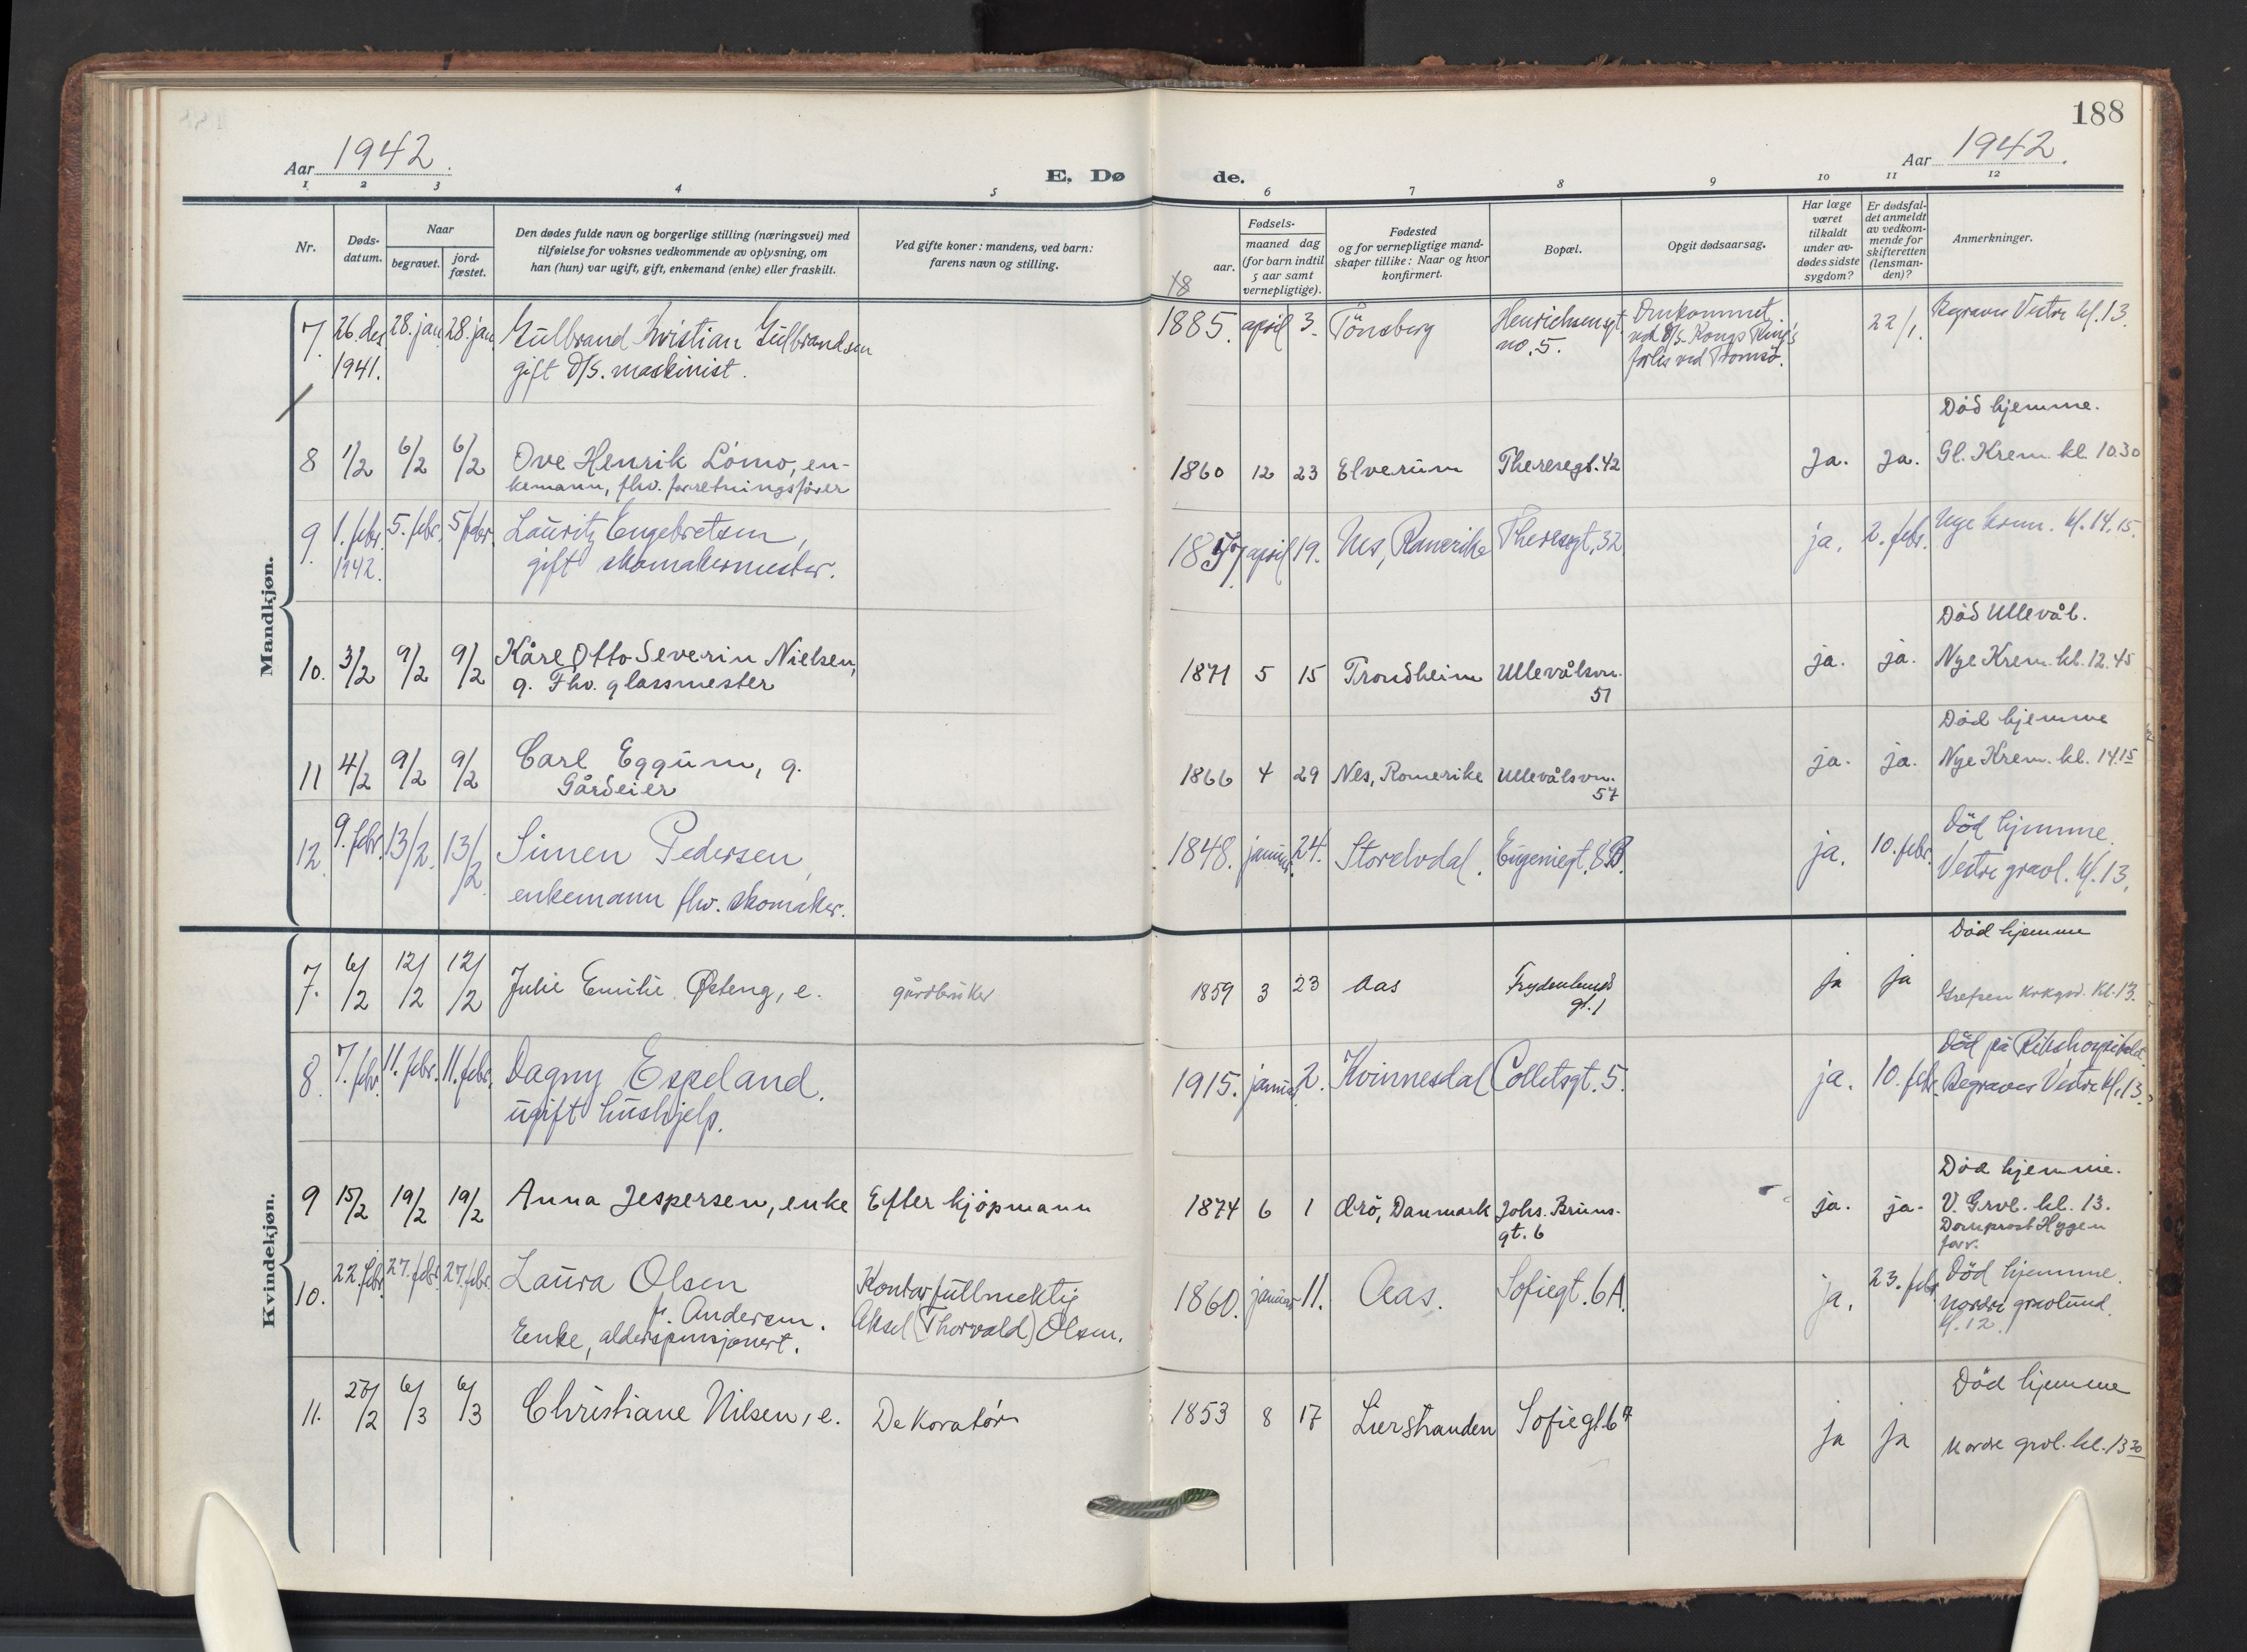 188
Aar 1942.
E. Døde.
Aar 1942.
1 2 3 4 5 6 7 8 9 10 11 12
Nr.
Døds-
datum.
Naar
begravet.
jord-
fæstet.
Den dødes fulde navn og borgerlige stilling (næringsvei) med
tilføielse for voksnes vedkommende av oplysning, om
han (hun) var ugift, gift, enkemand (enke) eller fraskilt.
Ved gifte koner: mandens, ved barn:
farens navn og stilling.
Fødsels-
aar.
maaned dag
(for barn indtil
5 aar samt
vernepligtige).
Fødested
og for vernepligtige mand-
skaper tillike: Naar og hvor
konfirmert.
Bopæl.
Opgit dødsaarsag.
Har læge
været
tilkaldt
under av-
dødes sidste
sygdom?
Er dødsfal-
det anmeldt
av vedkom-
mende for
skifteretten
(lensman-
den)?
Anmerkninger.
18
Mandkjøn.
7. 26 des 28. jan 28 jan. Gulbrand Kristian Gulbrandsen 1885. april 3. Tönsberg Henrichsensgt. Omkommet 22/1. Begraves Vestre kl. 13.
1941. gift D/S. maskinist. no. 5. ved D/S. Kongs Ring's
forlis ved Tromsö.
Död hjemme.
8 1/2 6/2 6/2 Ove Henrik Lömo, en- 1860 12 23 Elverum Theresegt. 42 Ja. Ja. Gl. Krem. kl. 10.30
kemann, fhv. forretningsfører
9. 1. febr. 5. febr. 5 febr. Lauritz Engebretsen, 1857. april 19. Nes, Romerike Theresgt. 32 ja. 2. febr. Nye krem. kl. 14.15.
1942. gift skomakermester.
Död Ullevål.
10. 3/2 9/2 9/2 Kåre Otto Severin Nielsen, 1871 5 15 Trondheim Ullevålsvn. ja. ja. Nye Krem. kl. 12.45
g. Fhv. glassmester 51
Död hjemme
11 4/2 9/2 9/2 Carl Eggum, g. 1866 4 29 Nes, Romerike Ullevålsvn. ja. ja. Nye Krem. kl. 14.15
Gårdeier 57
Död hjemme.
12. 9. febr. 13/2. 13/2 Simen Pedersen, 1848. januar 24. Storelvdal. Eugeniegt. 8B. ja. 10. febr. Vestre gravl. kl. 13.
enkemann fhv. skomaker.
Kvindekjøn.
Död hjemme
7. 6/2 12/2 12/2 Julie Emilie Østeng, e. gårdbruker 1859 3 23 Aas Frydenlunds ja ja Grefsen krkgrd. kl. 13.
gt. 1
Död på Rikshospitalet.
8. 7. febr. 11. febr. 11. febr. Dagny Espeland. 1915. januar 2. Kvinnesdal Colletsgt. 5. ja. 10. febr. Begraves Vestre kl. 13.
ugift hushjelp.
Död hjemme.
9 15/2 19/2 19/2 Anna Jespersen, enke Efter kjöpmann 1874 6 1 Ærö, Danmark Johs. Bruns- ja. ja. V. Grvl. kl. 13.
gt. 6 Domprost Hygen
forr.
10. 22. febr. 27. febr. 27. febr. Laura Olsen Kontorfullmektig 1860. januar 11. Aas. Sofiegt. 6A. ja. 23. febr. Död hjemme.
f. Andersen. Aksel (Thorvald) Olsen. Nordre gravlund
Enke, alderspensjonert. kl. 12.
Död hjemme
11. 27/2 6/3 6/3 Christiane Nilsen, e. Dekoratör 1853 8 17 Lierstranden Sofiegt 6A ja ja Nordre grvl. kl. 13 30